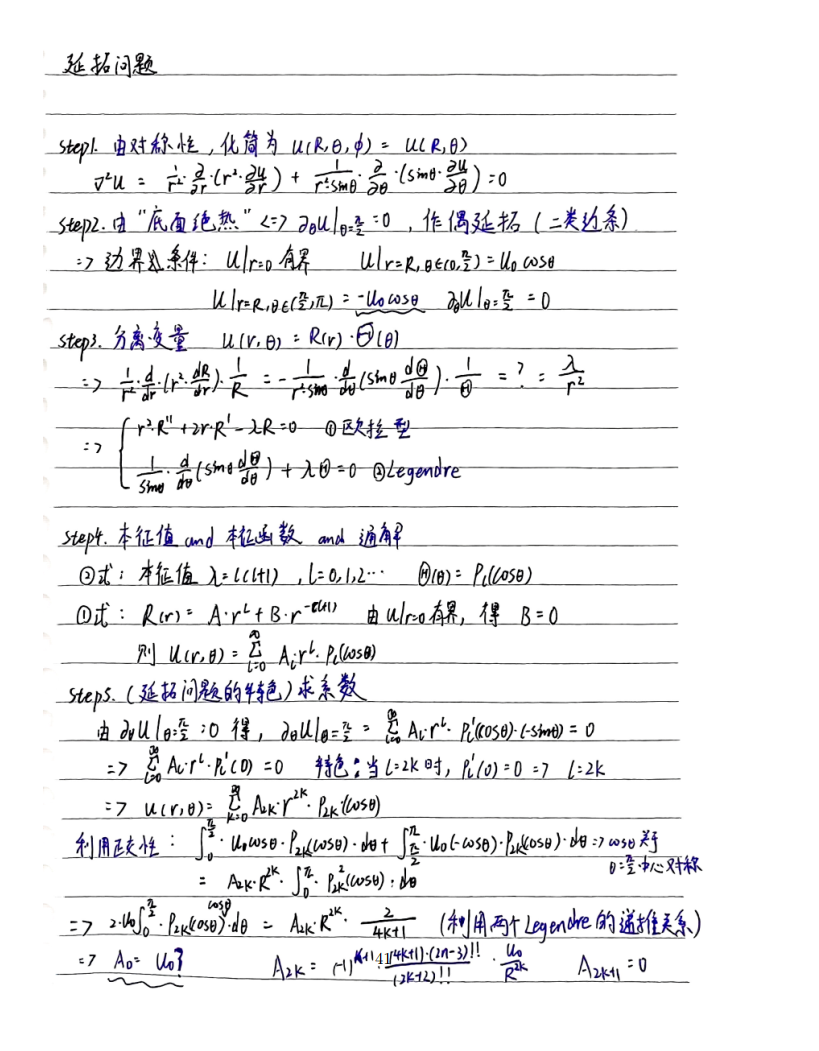 延拓问题
step1. 由对称性，化简为 u(R,θ,ϕ) = u(R,θ)
∇²u = 1/r² · ∂/∂r · (r² · ∂u/∂r) + 1/(r²sinθ) · ∂/∂θ · (sinθ · ∂u/∂θ) = 0
step2. 由“底面绝热” <=> ∂θu|θ=π/2 = 0 ，作偶延拓（二类边条）
=> 边界条件： u|r=0 有界 u|r=R,θ∈(0,π/2) = u₀ cosθ
u|r=R,θ∈(π/2,π) = -u₀cosθ ∂θu|θ=π/2 = 0
step3. 分离变量 u(r,θ) = R(r)·Θ(θ)
=> 1/r² · d/dr · (r² · dR/dr) · 1/R = - 1/(r²sinθ) · d/dθ (sinθ dΘ/dθ) · 1/Θ = ? = λ/r²
=> { r²·R'' + 2r·R' - λR = 0 ①欧拉型
1/sinθ · d/dθ (sinθ dΘ/dθ) + λΘ = 0 ②Legendre
step4. 本征值 and 本征函数 and 通解
②式：本征值 λ = l(l+1) , l = 0,1,2… Θ(θ) = Pₗ(cosθ)
①式： R(r) = A·r^l + B·r^-(l+1) 由 u|r=0 有界，得 B=0
则 u(r,θ) = ∑_{l=0}^∞ Aₗ r^l · Pₗ(cosθ)
step5.（延拓问题的特色）求系数
由 ∂θu|θ=π/2 = 0 得， ∂θu|θ=π/2 = ∑_{l=0}^∞ Aₗ·r^l · Pₗ'(cosθ)·(-sinθ) = 0
=> ∑_{l=0}^∞ Aₗ·r^l·Pₗ'(0) = 0 特色：当 l=2k 时， Pₗ'(0) = 0 => l=2k
=> u(r,θ) = ∑_{k=0}^∞ A2k·r^2k · P2k(cosθ)
利用正交性： ∫_0^{π/2} · u₀cosθ·P2k(cosθ)·dθ + ∫_{π/2}^π · u₀(-cosθ)·P2k(cosθ)·dθ => cosθ 关于
θ=π/2 中心对称
= A2k·R^2k · ∫_0^π · P2k²(cosθ)·dθ
=> 2·u₀∫_0^{π/2} · P2k(cosθ) cosθ ·dθ = A2k·R^2k · 2/(4k+1) （利用两个Legendre的递推关系）
=> A₀ = u₀? A2k = (-1)^(k+1) (4k+1)·(2n-3)!!/(2k+2)!! · u₀/R^2k A2k+1 = 0
41